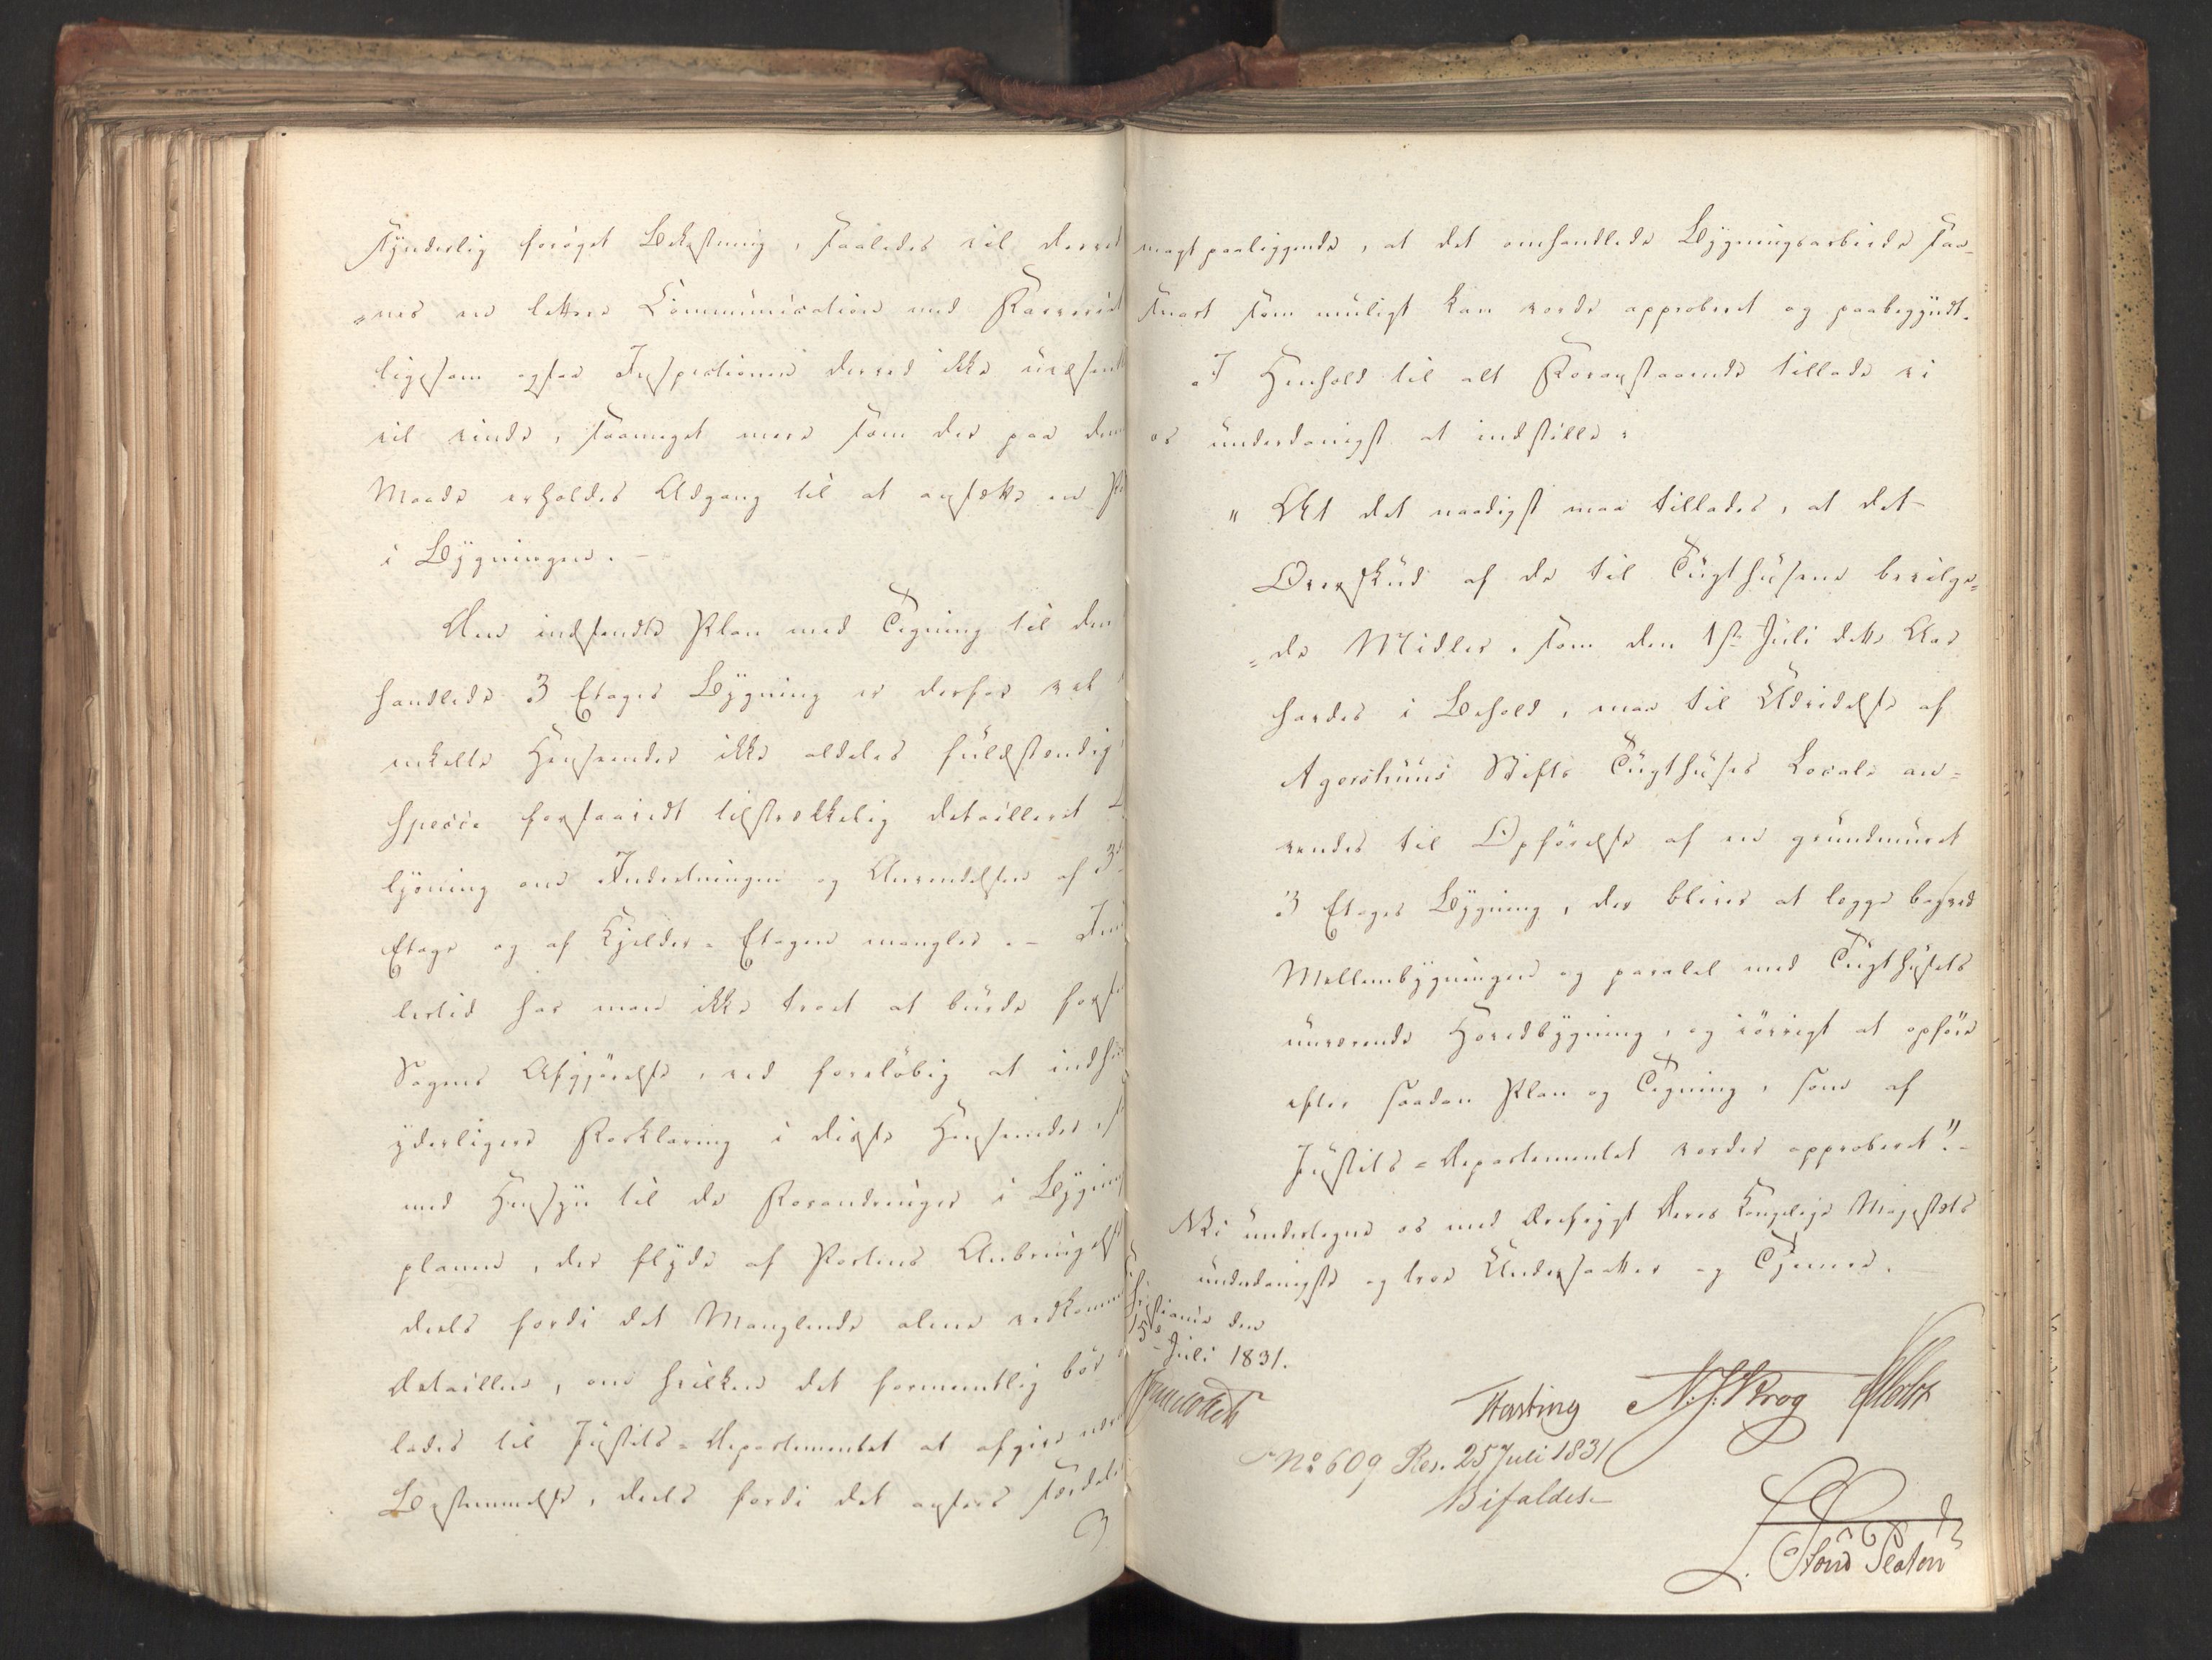 synderlig forøget Bekostning, saaledes vil derved
"nes en lettere Communication med Værerne
ligesom ogsaa Inspectionen derved ikke uvæsentl
vil vinde, saameget mere som der paa denne
Maade erholdes Adgang til at ansætte en
i Bygningen. —
Den indsendte Plan med Tegning til den
handlede 3 Etages Bygning er derfor vel
enkelte Henseender ikke aldeles fuldstændig
specie forsaavidt tilstrækkelig detailleret
lysning om Indretningen og Anvendelsen af 3die
Etage og af Kjelder-Etagen mangler. — Imid
lertid har man ikke troet at burde
Sagens Afgjørelse, ved foreløbig at indh
yderligere Forklaring i disse Henseender
med Hensyn til de Forandringer i Bygnings
planen, der flyde af Portens Anbringelse
deels fordi det Manglende alene vedkommer
Detaillen, om hvilken det formeentlig bør
lades til Justits-Departementet at afgive
Bestemmelse, deels fordi det ansees særdeles
magtpaaliggende, at det omhandlede Bygningsarbeide saa-
snart som muligt kan vorde approberet og paabegyndt.
I Henhold til alt Foranstaaende tillade vi
os underdanigst at indstille:
"At det naadigst maa tillades, at det
Overskud af de til Tugthusene bevilge-
"de Midler, som den 1ste Juli dette Aar
havdes i Behold, maa til Udvidelse af
Agershuus Stifts Tugthuses Locale an-
vendes til Opførelse af en grundmuret
3 Etages Bygning, der bliver at lægge bagved
Mellembygningen og paralel med Tugthusets
nuværende Hovedbygning, og iøvrigt at opføre
efter saadan Plan og Tegning, som af
Justits-Departementet vorder approberet". —
Vi undertegne os med Ærefrygt Deres Kongelige Majestæts
underdanigste og troe Undersaatter og Tjenere.
Christiania den
15de Juli 1831.
Hasting N. J. Krog
No 609 Res. 25 Juli 1831
Bifaldes
L. v Platen